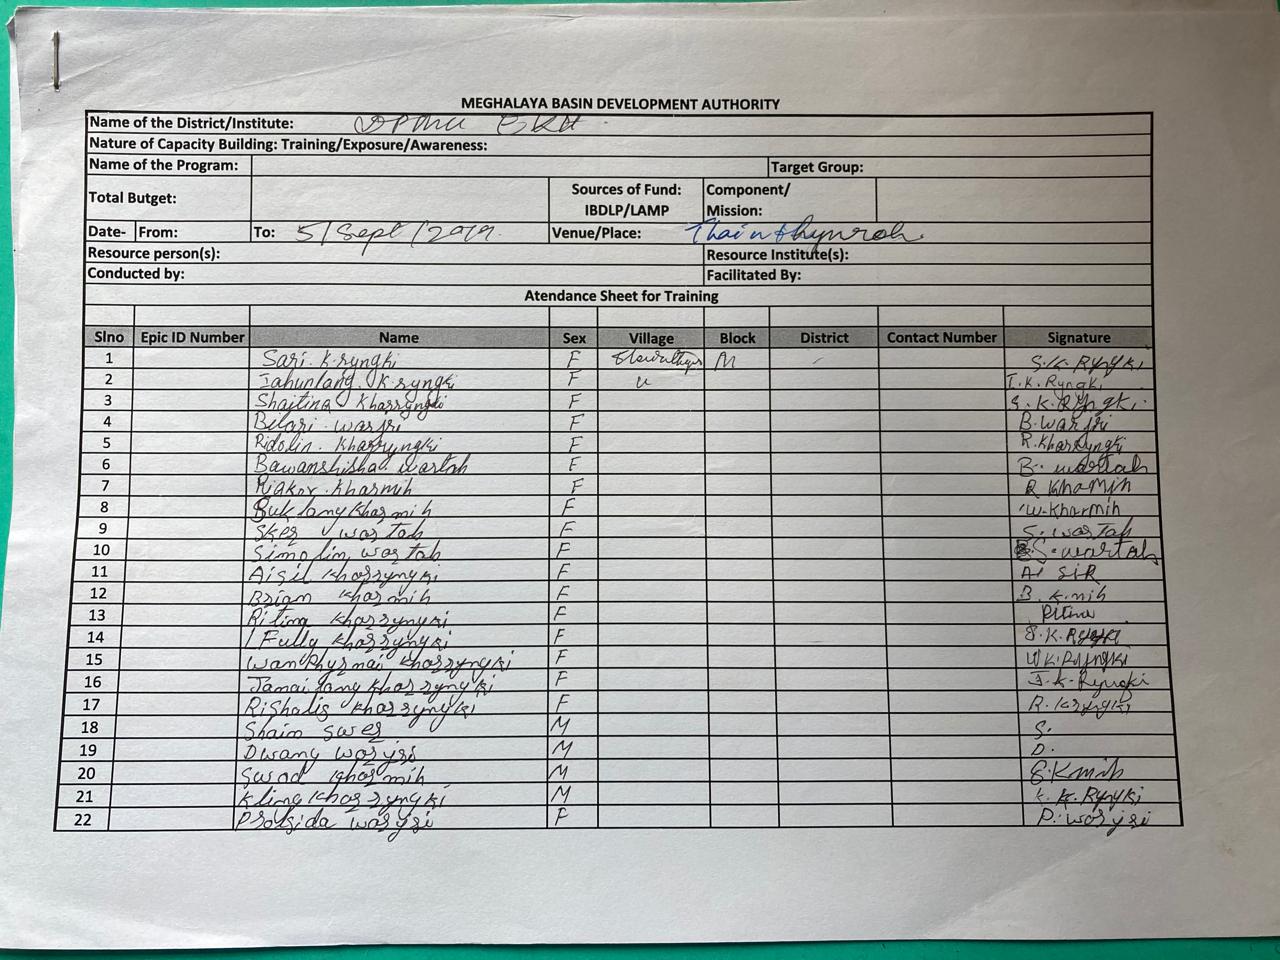 MEGHALAYA BASIN DEVELOPMENT AUTHORITY
Name of the District/Institute: DPMU EKH
Nature of Capacity Building: Training/Exposure/Awareness:
Name of the Program: Target Group:
Total Butget: Sources of Fund: IBDLP/LAMP Component/ Mission:
Date- From: To: 5/Sept/2019. Venue/Place:
Resource person(s): Resource Institute(s):
Conducted by: Facilitated By:
Atendance Sheet for Training
Slno Epic ID Number Name Sex Village Block District Contact Number Signature
1 Sari. K.ryngki F M S.K.Ryngki
2 Iahunlang. K.ryngki F u I.K.Ryngki
3 Shajtina Kharryngki F S.K.Ryngki.
4 Bilari. warjri F B.warjri
5 Ridolin. Kharryngki F R.Kharryngki
6 Bawanshisha. wartah F B. wartah
7 Riakor. Kharmih F R Khamih
8 Buklang Kharmih F W.Kharmih
9 Sker wartah F S. wartah
10 Simolin wartah F S.wartah
11 Aisil Kharryngki F Ai SiR
12 Brian Kharmih F B. K.mih
13 Ritina Kharryngki F Ritina
14 Fully Kharryngki F
15 WanPhyrnai Kharryngki F W K.Ryngki
16 Jamailang Kharryngki F J.K.Ryngki
17 Rishalis Kharryngki F
18 Shain swer M S.
19 Dwang warjri M D.
20 Swad Kharmih M S.Kmih
21 Kling Kharryngki M K.K.Ryngki
22 warjri F P. warjri